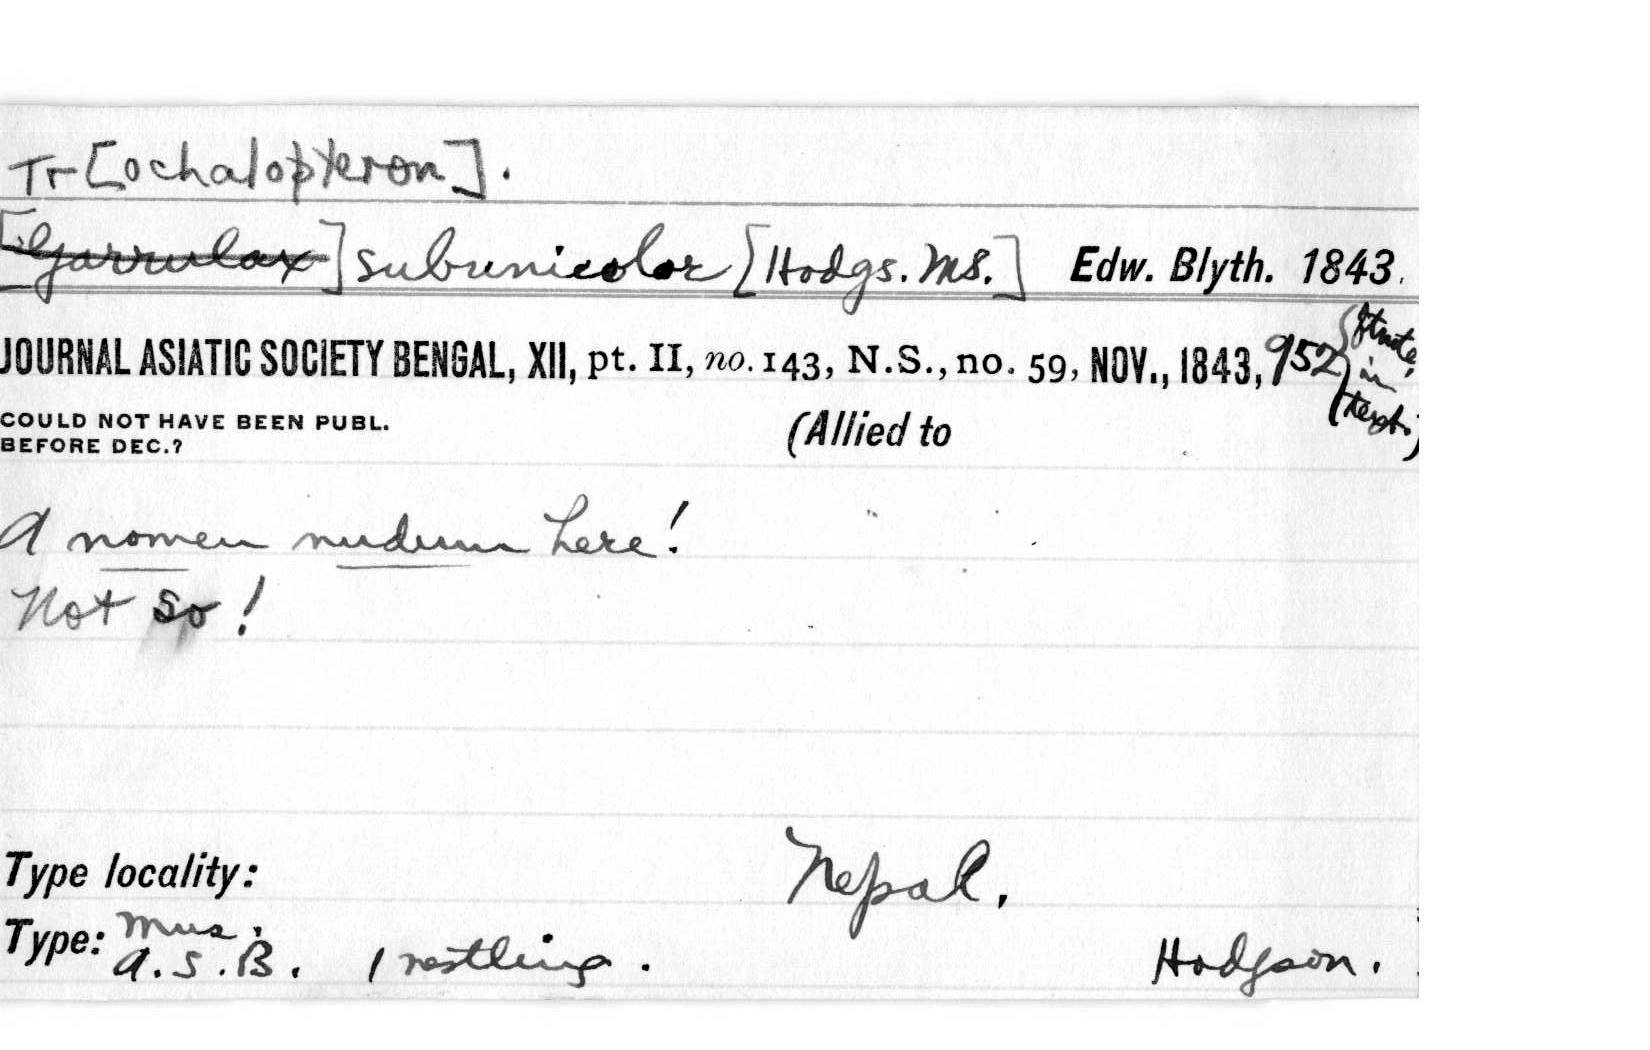 Tr[ochalopteron].
[Garrulax] subunicolor [Hodgs. MS.] Edw. Blyth. 1843.
JOURNAL ASIATIC SOCIETY BENGAL, XII, pt. II, no. 143, N.S., no. 59, NOV., 1843, 952 (ftnote in text.)
COULD NOT HAVE BEEN PUBL.
BEFORE DEC.?
(Allied to
A nomen nudum here!
Not so!
Type locality: Nepal.
Type: Mus. A.S.B. 1 nestling. Hodgson.